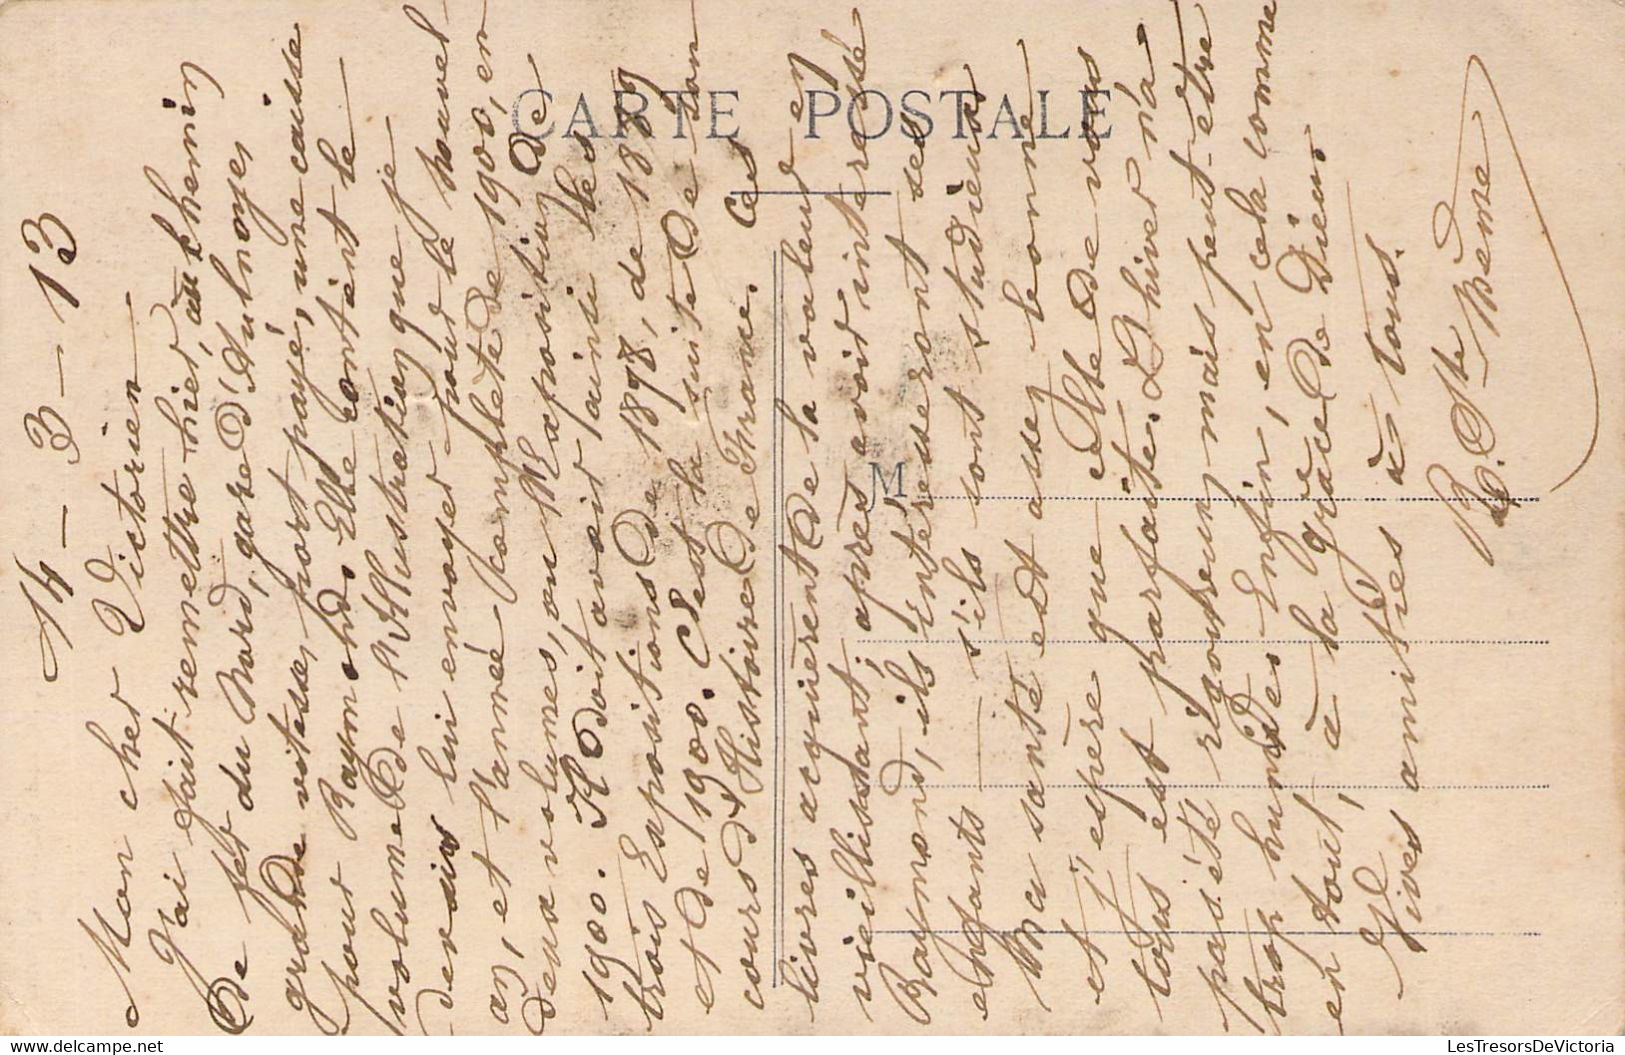 CARTE POSTALE
M
14 - 3 - 13
Mon cher Victorien
J'ai fait remettre hier, au chemin
de fer du Nord, gare d'Aulnoye,
grande vitesse, port payé, une caisse
pour Raymond. Elle contient le
volume de l'Illustration que je
devais lui envoyer pour le nouvel
an, et l'année complète de 1900, en
deux volumes, ou l'Exposition de
1900. R doit avoir ainsi les
trois Expositions de 1878, de 1889
et de 1900. C'est la suite de son
cours d'Histoire de France. Ces
livres acquièrent de la valeur en
vieillissant, après avoir intéressé
Raymond, ils intéresseront ses
enfants s'ils sont studieux
Ma santé est assez bonne
et j'espère que celle de vous
tous est parfaite. L'hiver n'a
pas été rigoureux mais peut-être
trop humide. Enfin, en cela comme
en tout, à la grâce de Dieu.
Vives amitiés à tous.
B. Ste Beme
LesTresorsDeVictoria